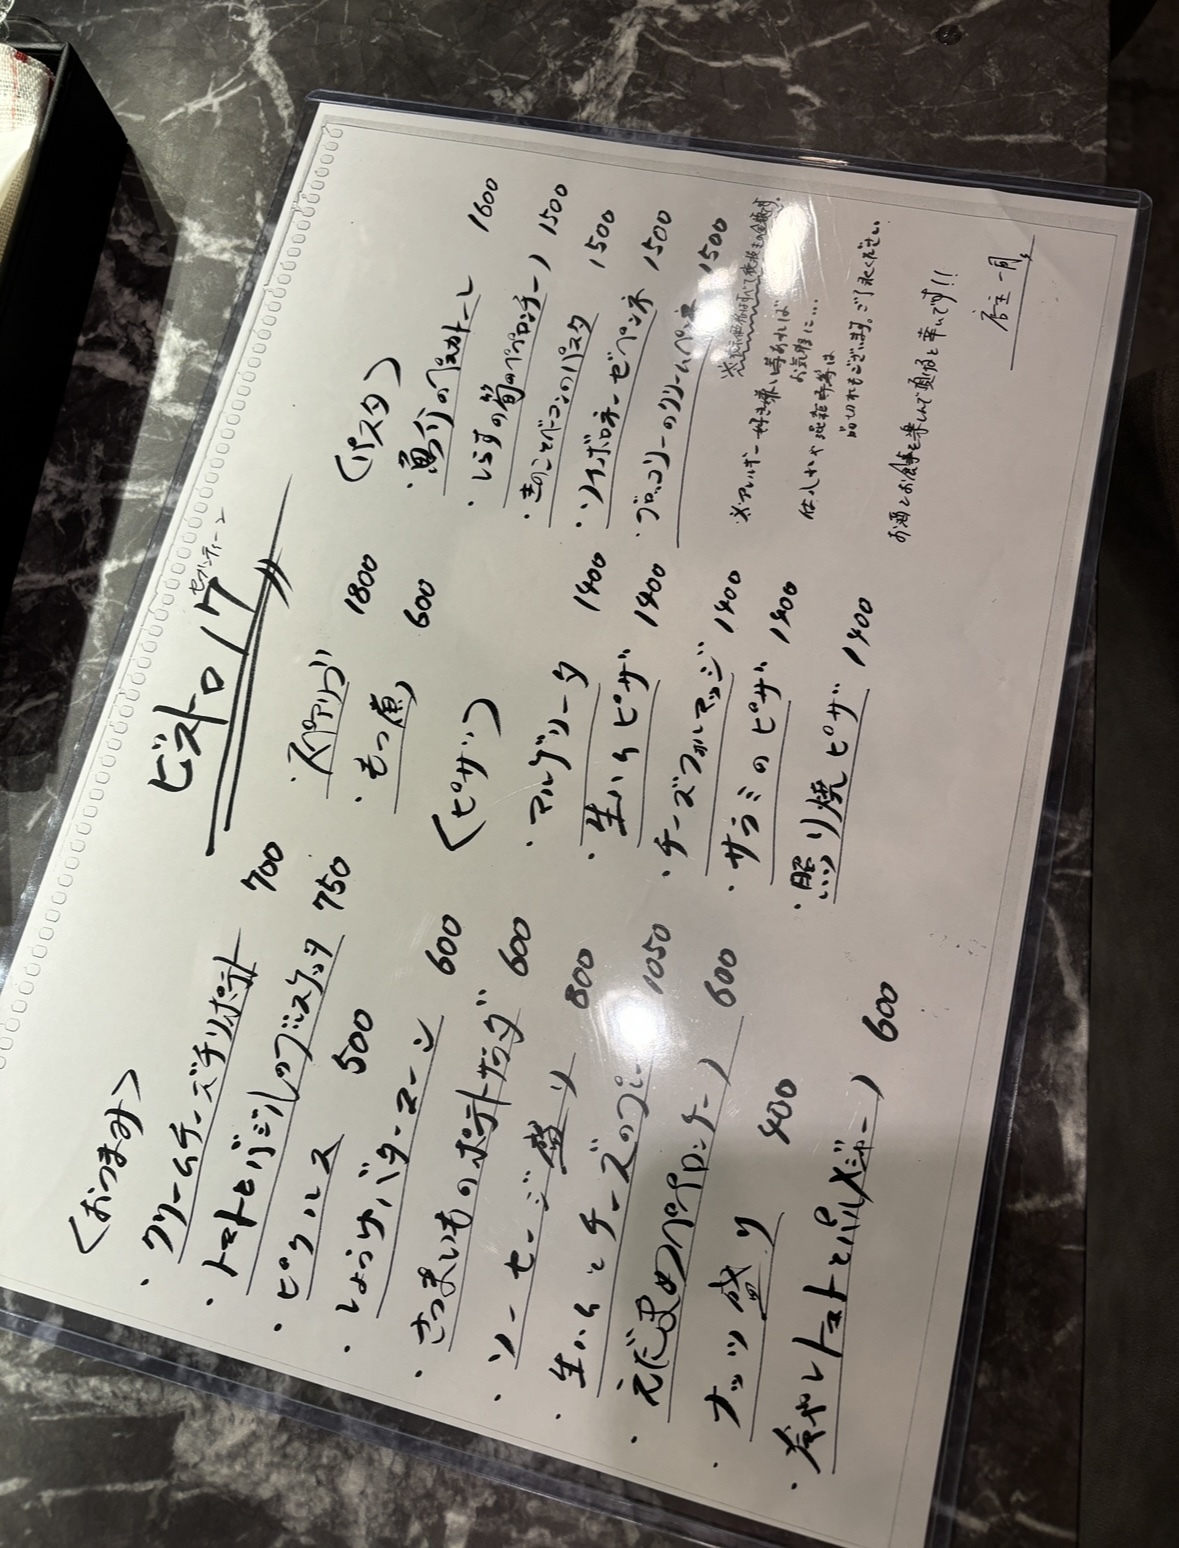 ビストロ17
セブンティーン
〈おつまみ〉
・クリームチーズチリポテト 700
・トマトとバジルのブルスケッタ 750
・ピクルス 500
・しょうけバターコーン 600
・さつまいものポテトサラダ 600
・ソーセージ盛り 800
・生ハムとチーズの 1050
・えだまめのペペロンチーノ 600
・ナッツ盛り 400
・冷やしトマトとパルメジャーノ 600
・スペアリブ 1800
・もつ煮 600
〈ピザ〉
・マルゲリータ 1400
・生ハムピザ 1400
・チーズフォルマッジ 1400
・サラミのピザ 1400
・照り焼ピザ 1400
〈パスタ〉
・魚介のペスカトーレ 1600
・しらすの筍のペペロンチーノ 1500
・きのことベーコンのパスタ 1500
・ソイボロネーゼペンネ 1500
・ブロッコリーのクリームペンネ 1500
※アレルギー好き嫌い等あれば
お気軽に…
仕入れや混雑時等は
品切れもございます。ご了承ください
お酒とお食事を楽しんで頂ければ幸いです!!
店主